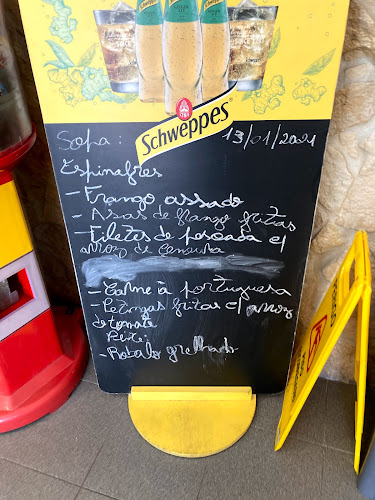 Schweppes
Sopa: 13/01/2021
Espinafres
- Frango assado
- Asas de frango fritas
- Filetes de pescada c/
arroz de cenoura
- Carne à portuguesa
- Petingas fritas c/ arroz
de tomate
- Robalo grelhado